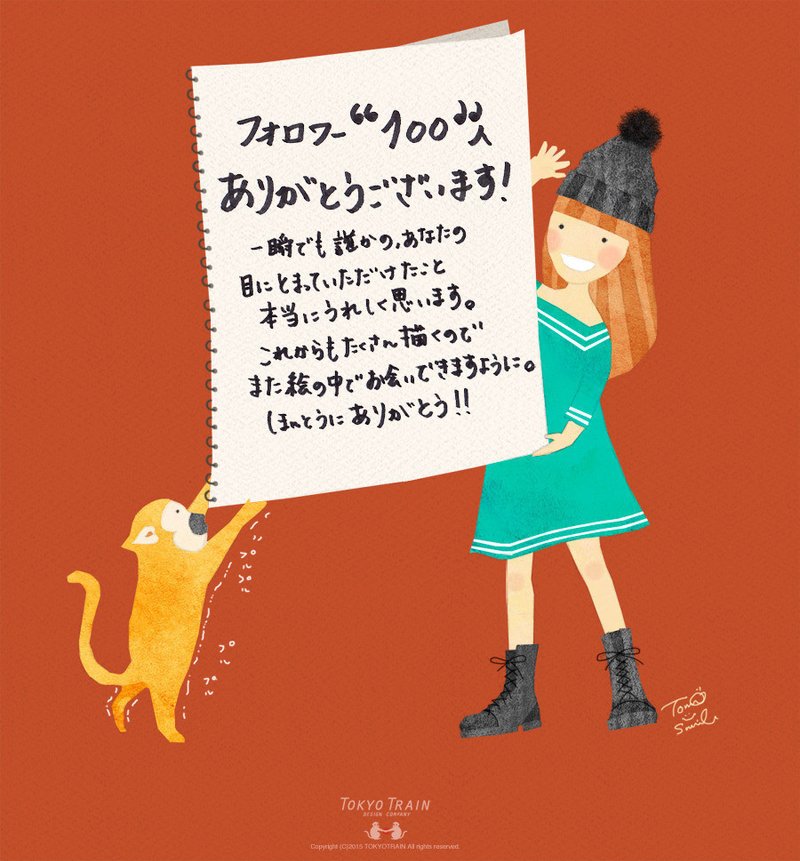 フォロワー“100”人
ありがとうございます!
一瞬でも誰かの、あなたの
目にとまっていただけたこと
本当にうれしく思います。
これからもたくさん描くので
また絵の中でお会いできますように。
ほんとうにありがとう!!
プルプル
プル
プル
Tomo
Smile
TOKYO TRAIN
DESIGN COMPANY
Copyright (C)2015 TOKYOTRAIN All rights reserved.